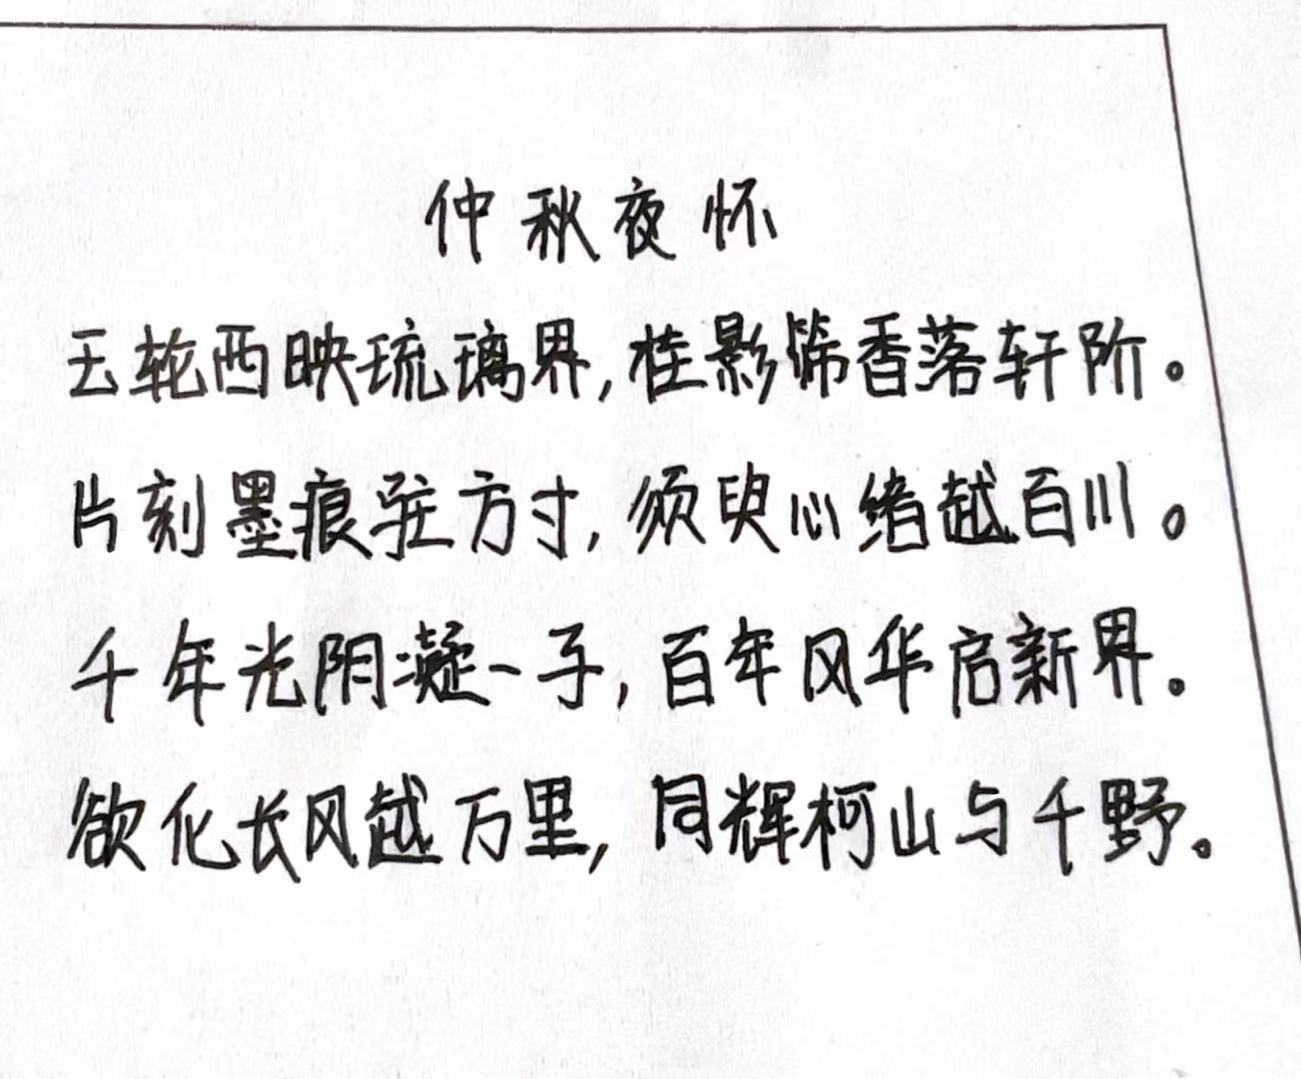 仲秋夜怀
玉轮西映琉璃界,桂影筛香落轩阶。
片刻墨痕驻方寸,须臾心绪越百川。
千年光阴凝一子,百年风华启新界。
欲化长风越万里,同辉柯山与千野。